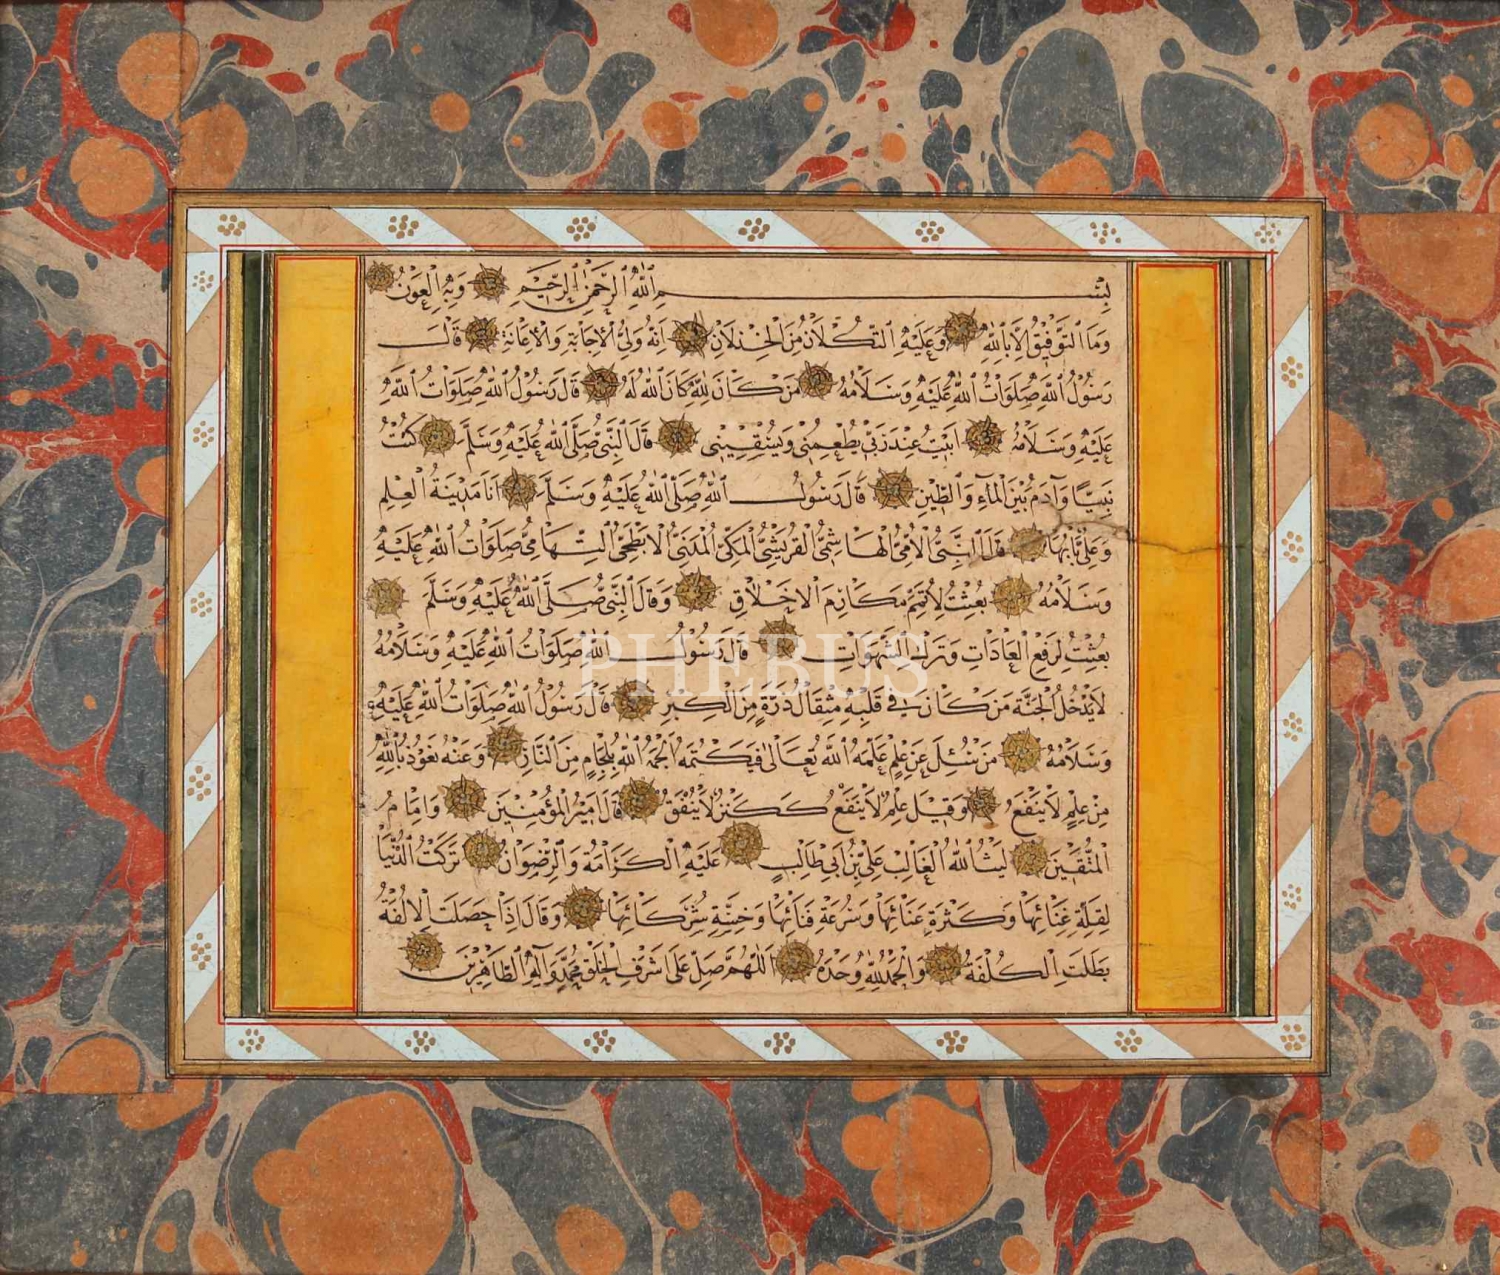 بِسْمِ اللّٰهِ الرَّحْمٰنِ الرَّحِيْمِ وَبِهِ الْعَوْنُ
وَمَا التَّوْفِيْقُ اِلَّا بِاللّٰهِ وَعَلَيْهِ التُّكْلَانُ مِنَ الْخِذْلَانِ اِنَّهُ وَلِيُّ الْاِجَابَةِ وَالْاِعَانَةِ قَالَ
رَسُوْلُ اللّٰهِ صَلَوَاتُ اللّٰهِ عَلَيْهِ وَسَلَامُهُ مَنْ كَانَ لِلّٰهِ كَانَ اللّٰهُ لَهُ قَالَ رَسُوْلُ اللّٰهِ صَلَوَاتُ اللّٰهِ
عَلَيْهِ وَسَلَامُهُ اَبَيْتُ عِنْدَ رَبِّيْ يُطْعِمُنِيْ وَيَسْقِيْنِيْ قَالَ النَّبِيُّ صَلَّى اللّٰهُ عَلَيْهِ وَسَلَّمَ كُنْتُ
نَبِيًّا وَآدَمُ بَيْنَ الْمَاءِ وَالطِّيْنِ قَالَ رَسُوْلُ اللّٰهِ صَلَّى اللّٰهُ عَلَيْهِ وَسَلَّمَ اَنَا مَدِيْنَةُ الْعِلْمِ
وَعَلِيٌّ بَابُهَا قَالَ النَّبِيُّ الْاُمِّيُّ الْهَاشِمِيُّ الْقُرَيْشِيُّ الْمَكِّيُّ الْمَدَنِيُّ الْاَبْطَحِيُّ التِّهَامِيُّ صَلَوَاتُ اللّٰهِ عَلَيْهِ
وَسَلَامُهُ بُعِثْتُ لِاُتَمِّمَ مَكَارِمَ الْاَخْلَاقِ وَقَالَ النَّبِيُّ صَلَّى اللّٰهُ عَلَيْهِ وَسَلَّمَ
بُعِثْتُ لِرَفْعِ الْعَادَاتِ وَتَرْكِ الشَّهَوَاتِ قَالَ رَسُوْلُ اللّٰهِ صَلَوَاتُ اللّٰهِ عَلَيْهِ وَسَلَامُهُ
لَا يَدْخُلُ الْجَنَّةَ مَنْ كَانَ فِيْ قَلْبِهِ مِثْقَالُ ذَرَّةٍ مِنَ الْكِبْرِ قَالَ رَسُوْلُ اللّٰهِ صَلَوَاتُ اللّٰهِ عَلَيْهِ
وَسَلَامُهُ مَنْ سُئِلَ عَنْ عِلْمٍ عَلَّمَهُ اللّٰهُ تَعَالٰى فَيَكْتُمُهُ اَلْجَمَهُ اللّٰهُ بِلِجَامٍ مِنَ النَّارِ وَعَنْهُ نَعُوْذُ بِاللّٰهِ
مِنْ عِلْمٍ لَا يَنْفَعُ وَقِيْلَ عِلْمٌ لَا يَنْفَعُ كَكَنْزٍ لَا يُنْفَقُ قَالَ اَمِيْرُ الْمُؤْمِنِيْنَ وَاِمَامُ
الْمُتَّقِيْنَ لَيْثُ اللّٰهِ الْغَالِبُ عَلِيُّ بْنُ اَبِيْ طَالِبٍ عَلَيْهِ الْكَرَامَةُ وَالرِّضْوَانُ تَرَكْتُ الدُّنْيَا
لِقِلَّةِ غَنَائِهَا وَكَثْرَةِ عَنَائِهَا وَسُرْعَةِ فَنَائِهَا وَخِسَّةِ شُرَكَائِهَا وَقَالَ اِذَا حَصَلَتِ الْاُلْفَةُ
بَطَلَتِ الْكُلْفَةُ وَالْحَمْدُ لِلّٰهِ وَحْدَهُ اَللّٰهُمَّ صَلِّ عَلٰى اَشْرَفِ الْخَلْقِ مُحَمَّدٍ وَآلِهِ الطَّاهِرِيْنَ
PHEBUS